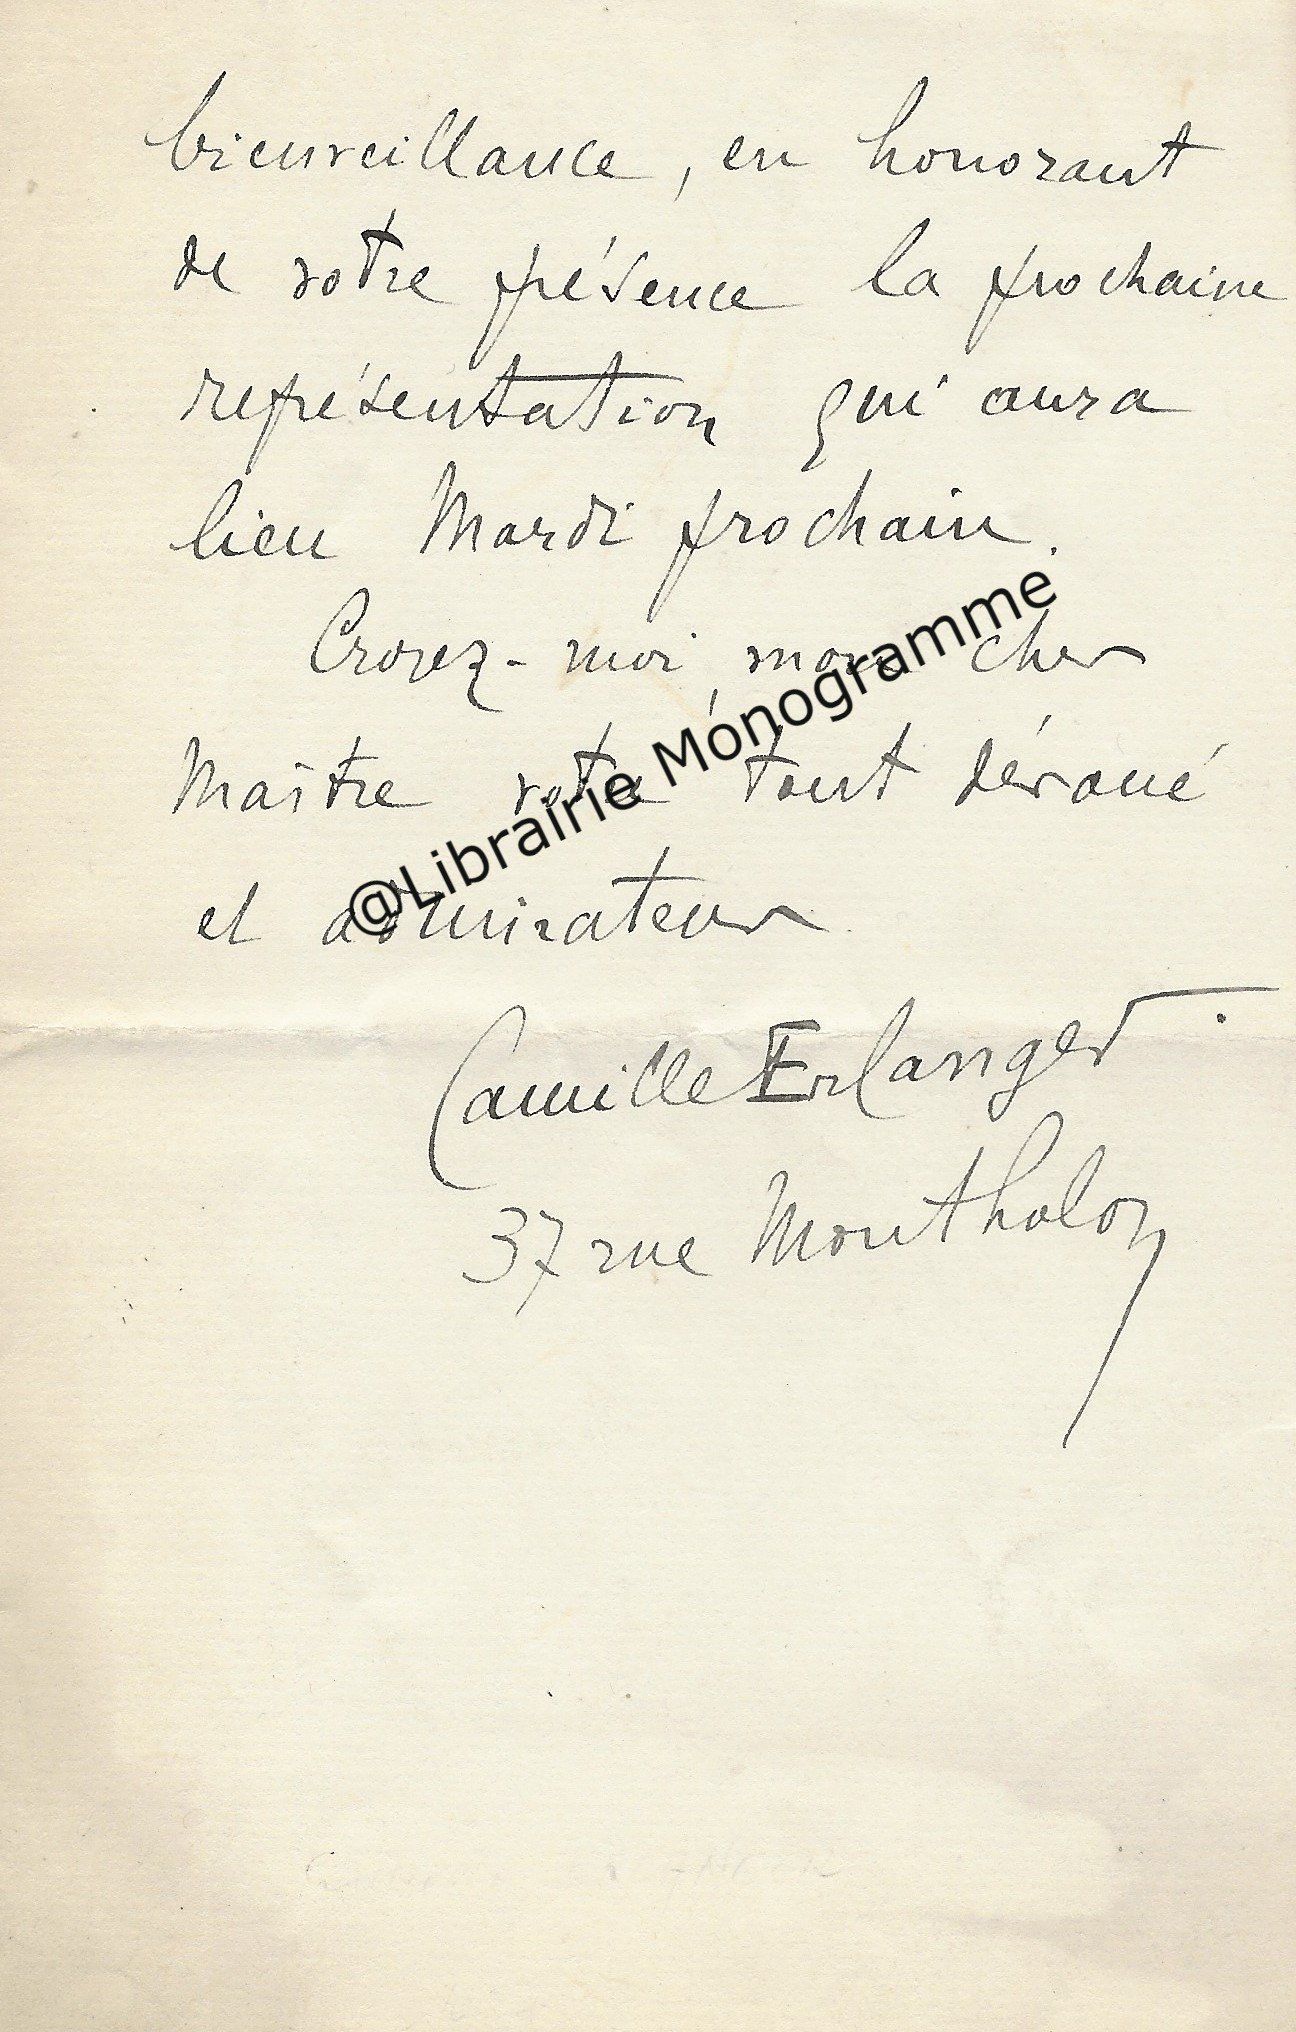 bienveillance, en honorant
de votre présence la prochaine
représentation qui aura
lieu Mardi prochain.
Croyez-moi, mon cher
Maître votre tout dévoué
et admirateur.
Camille Erlanger
37 rue Montholon
@Librairie Monogramme